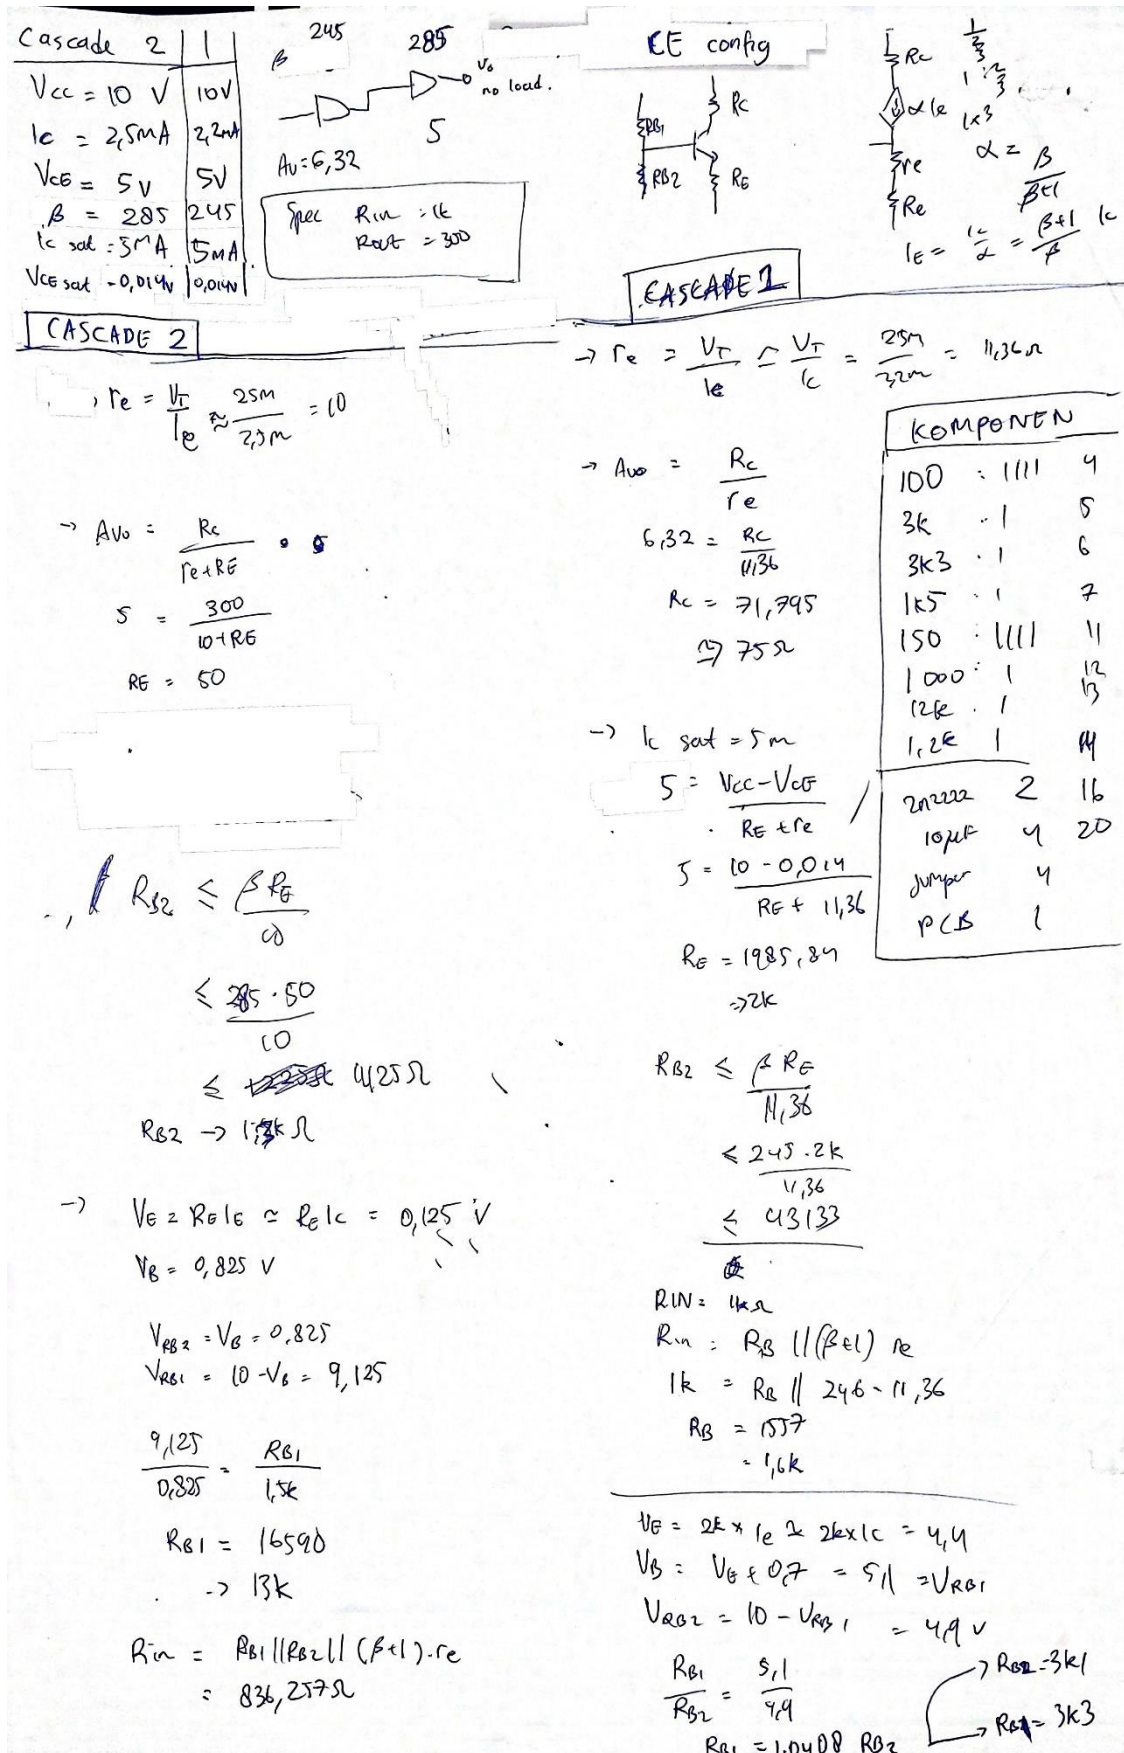 Cascade 2 | 1
Vcc = 10 V | 10V
Ic = 2,5mA | 2,2mA
VCE = 5V | 5V
β = 285 | 245
Ic sat = 3mA | 5mA
VCE sat - 0,014V | 0,014V
β 245 285
Vo
no load.
5
Av = 6,32
Spec Rin = 1k
Rout = 300
CE config
RB1
RC
RB2
RE
Rc
αIe
re
Re
1 : 2/3
1x3
α = β / β+1
IE = Ic / α = β+1 / β Ic
CASCADE 2
re = VT / Ie ≈ 25m / 2,5m = 10
→ Avo = Rc / re+RE
5 = 300 / 10+RE
RE = 50
RB2 ≤ β RE / 10
≤ 285 . 50 / 10
≤ 1425Ω
RB2 → 1,5k Ω
→ VE = RE IE ≃ RE Ic = 0,125 V
VB = 0,825 V
VRB2 = VB = 0,825
VRB1 = 10 - VB = 9,125
9,125 / 0,825 = RB1 / 1,5k
RB1 = 16590
→ 13k
Rin = RB1 || RB2 || (β+1).re
= 836,257Ω
CASCADE 1
→ re = VT / Ie ≃ VT / Ic = 25m / 2,2m = 11,36Ω
→ Avo = Rc / re
6,32 = Rc / 11,36
Rc = 71,795
≅ 75Ω
→ Ic sat = 5m
5 = Vcc - VCE / RE + re
5 = 10 - 0,014 / RE + 11,36
RE = 1985,84
⇒ 2k
RB2 ≤ β RE / 11,36
≤ 245 . 2k / 11,36
≤ 43133
RIN = 1kΩ
Rin = RB || (β+1) re
1k = RB || 246 - 11,36
RB = 1557
= 1,6k
VE = 2k x Ie ≃ 2k x Ic = 4,4
VB = VE + 0,7 = 5,1 = VRB1
VRB2 = 10 - VRB1 = 4,9 V
RB1 / RB2 = 5,1 / 4,9
RB1 = 1,0408 RB2
→ RB2 = 3k1
→ RB1 = 3k3
KOMPONEN
100 : |||| 4
3k . | 5
3k3 . | 6
1k5 . | 7
150 : |||| 11
1000 : | 12
12k . | 13
1,2k | 14
2n2222 2 16
10µF 4 20
jumper 4
PCB 1